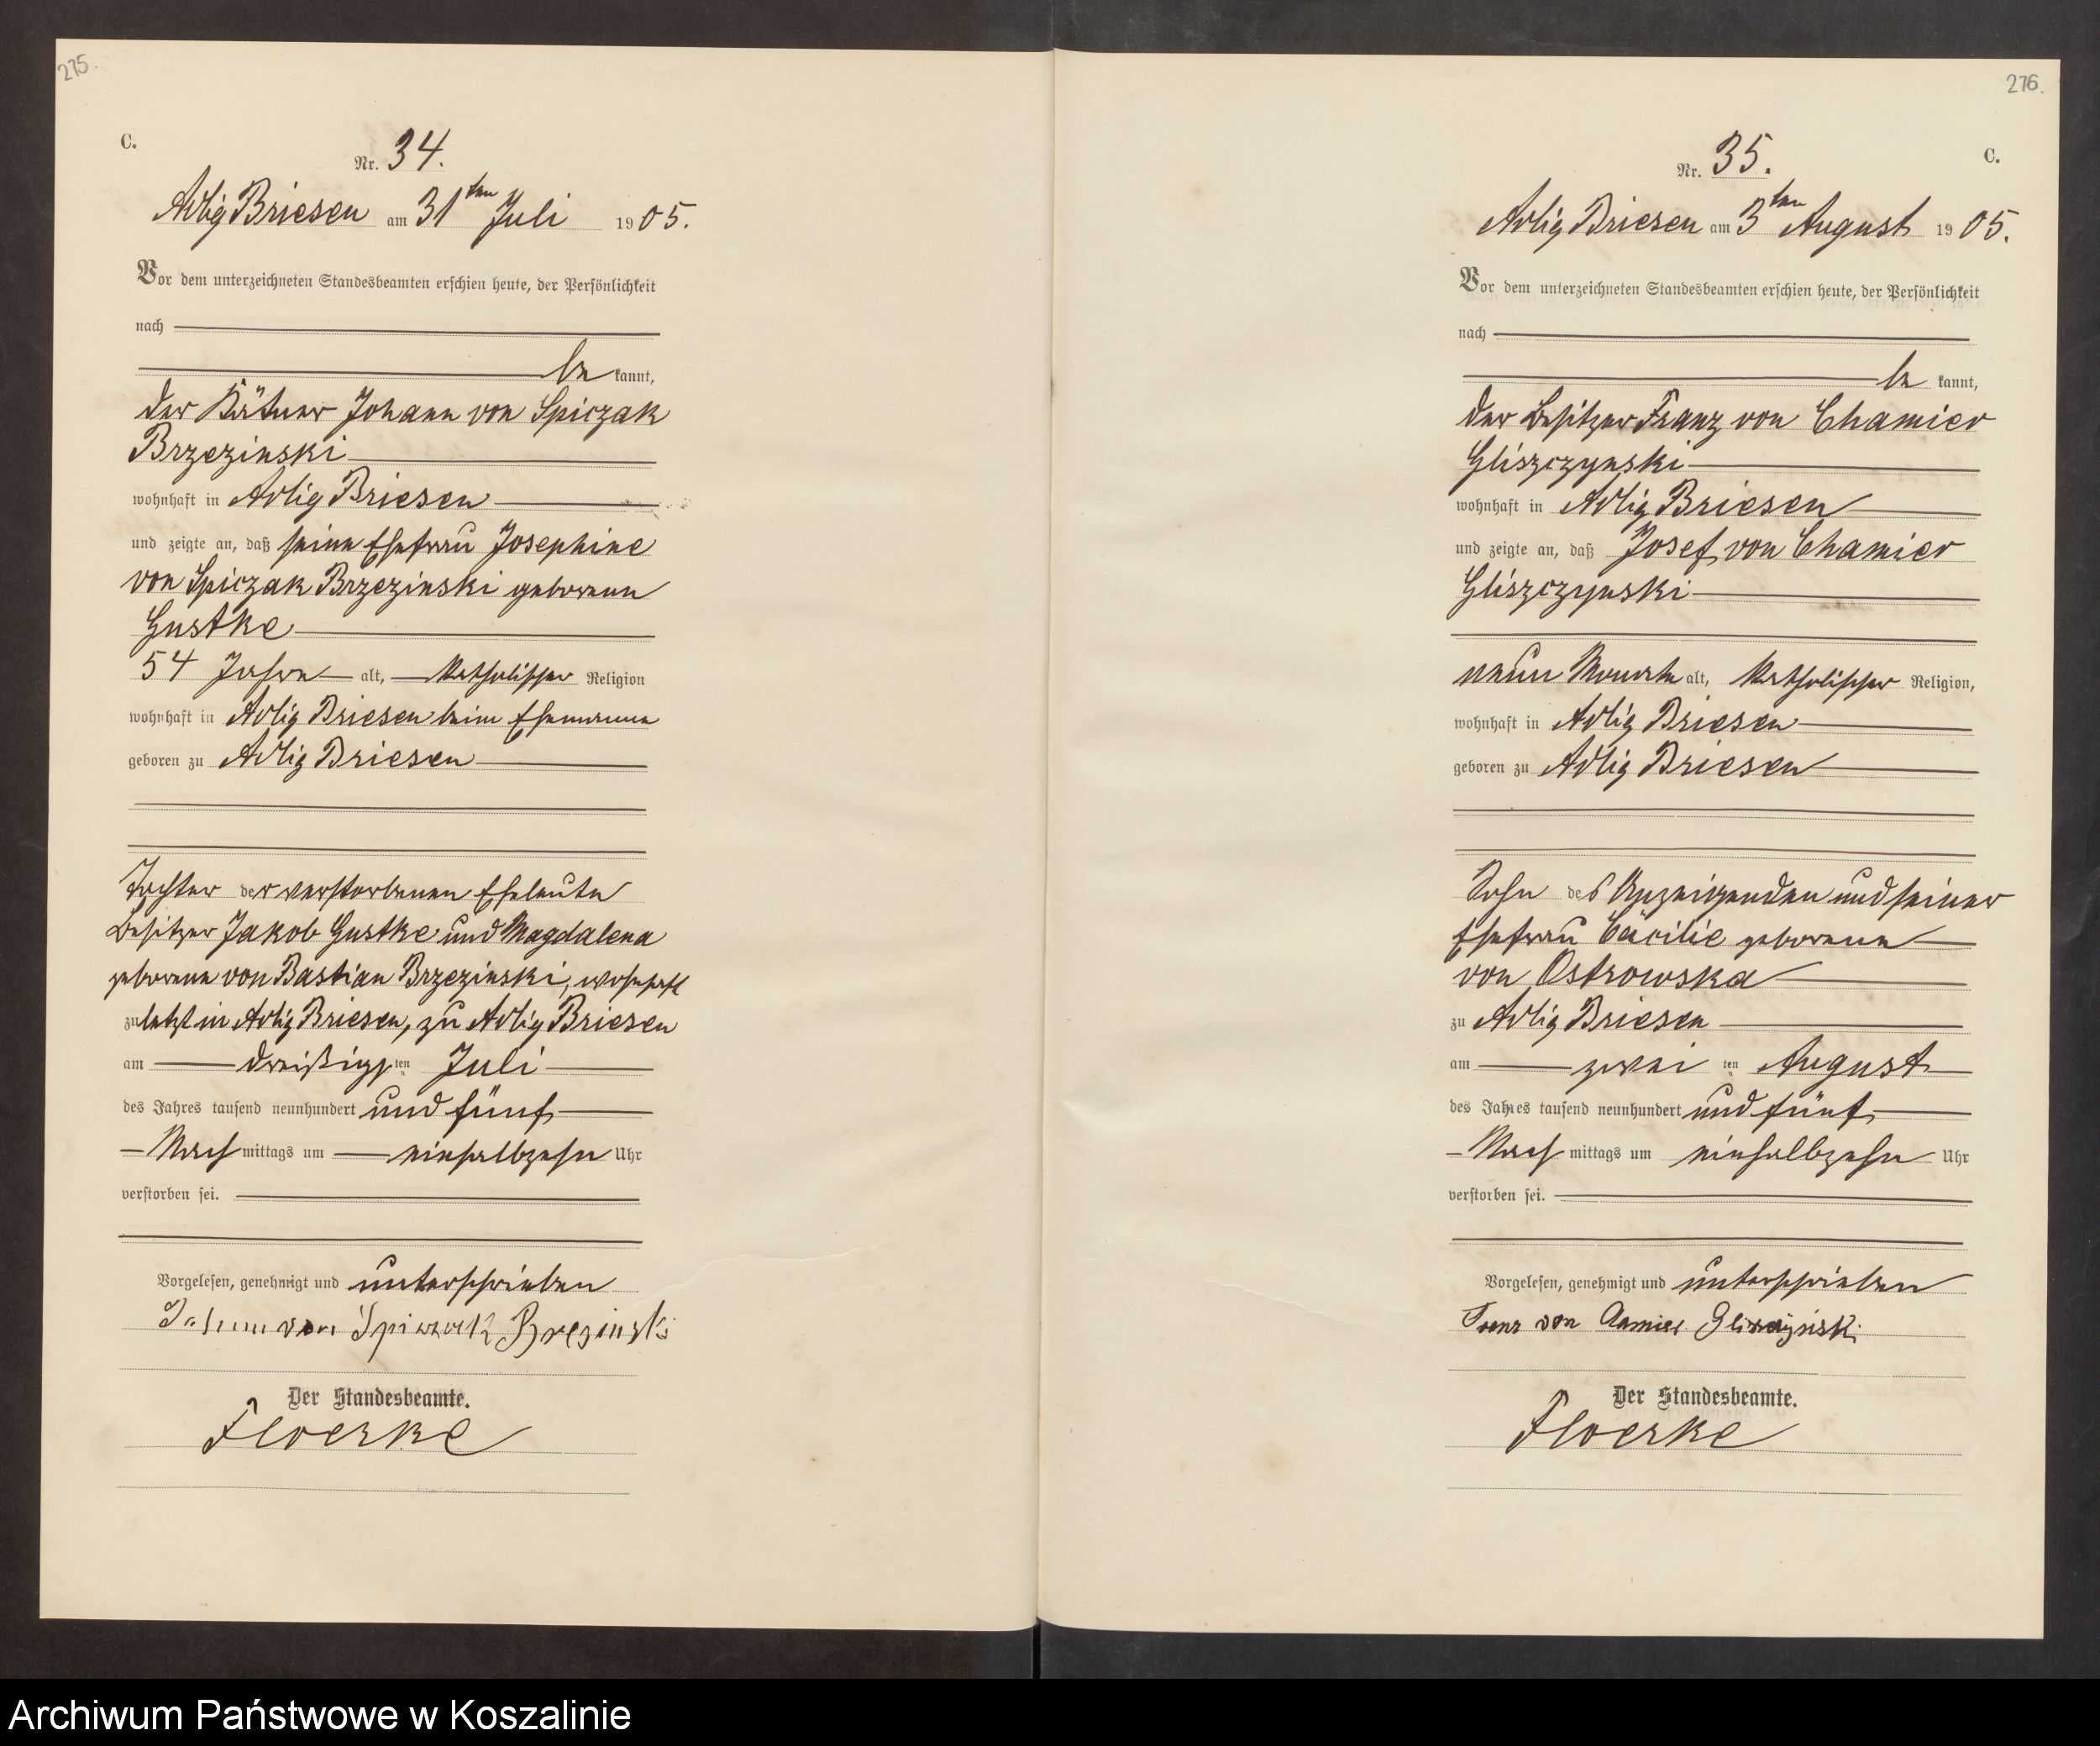 275.
C.
Nr. 34.
Adlig Briesen am 31ten Juli 1905.
Vor dem unterzeichneten Standesbeamten erschien heute, der Persönlichkeit
nach
be kannt,
der Kätner Johann von Spiczak
Brzezinski
wohnhaft in Adlig Briesen
und zeigte an, daß seine Ehefrau Josephine
von Spiczak Brzezinski geborene
Gustke
54 Jahre alt, katholischer Religion
wohnhaft in Adlig Briesen beim Ehemanne
geboren zu Adlig Briesen
Tochter der verstorbenen Eheleute
Besitzer Jakob Gustke und Magdalena
geborene von Bastian Brzezinski, wohnhaft
zuletzt in Adlig Briesen, zu Adlig Briesen
am dreißigsten Juli
des Jahres tausend neunhundert und fünf
Nach mittags um einhalbzehn Uhr
verstorben sei.
Vorgelesen, genehmigt und unterschrieben
Johann von Spiczack Brezinski
Der Standesbeamte.
Floerke
276.
C.
Nr. 35.
Adlig Briesen am 3ten August 1905.
Vor dem unterzeichneten Standesbeamten erschien heute, der Persönlichkeit
nach
be kannt,
der Besitzer Franz von Chamier
Gliszczynski
wohnhaft in Adlig Briesen
und zeigte an, daß Josef von Chamier
Gliszczynski
neun Monate alt, katholischer Religion,
wohnhaft in Adlig Briesen
geboren zu Adlig Briesen
Sohn des Anzeigenden und seiner
Ehefrau Cäcilie geborene
von Ostrowska
zu Adlig Briesen
am zwei ten August
des Jahres tausend neunhundert und fünf
Nach mittags um einhalbzehn Uhr
verstorben sei.
Vorgelesen, genehmigt und unterschrieben
von
Der Standesbeamte.
Floerke
Archiwum Państwowe w Koszalinie